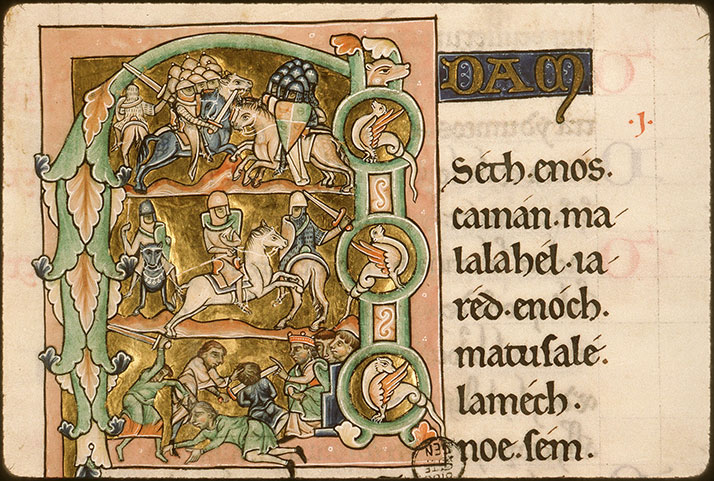 ADAM
.j.
Seth. enós.
cainán. ma-
lalahél. ia-
réd. enóch.
matusalé.
laméch.
noe. sém.